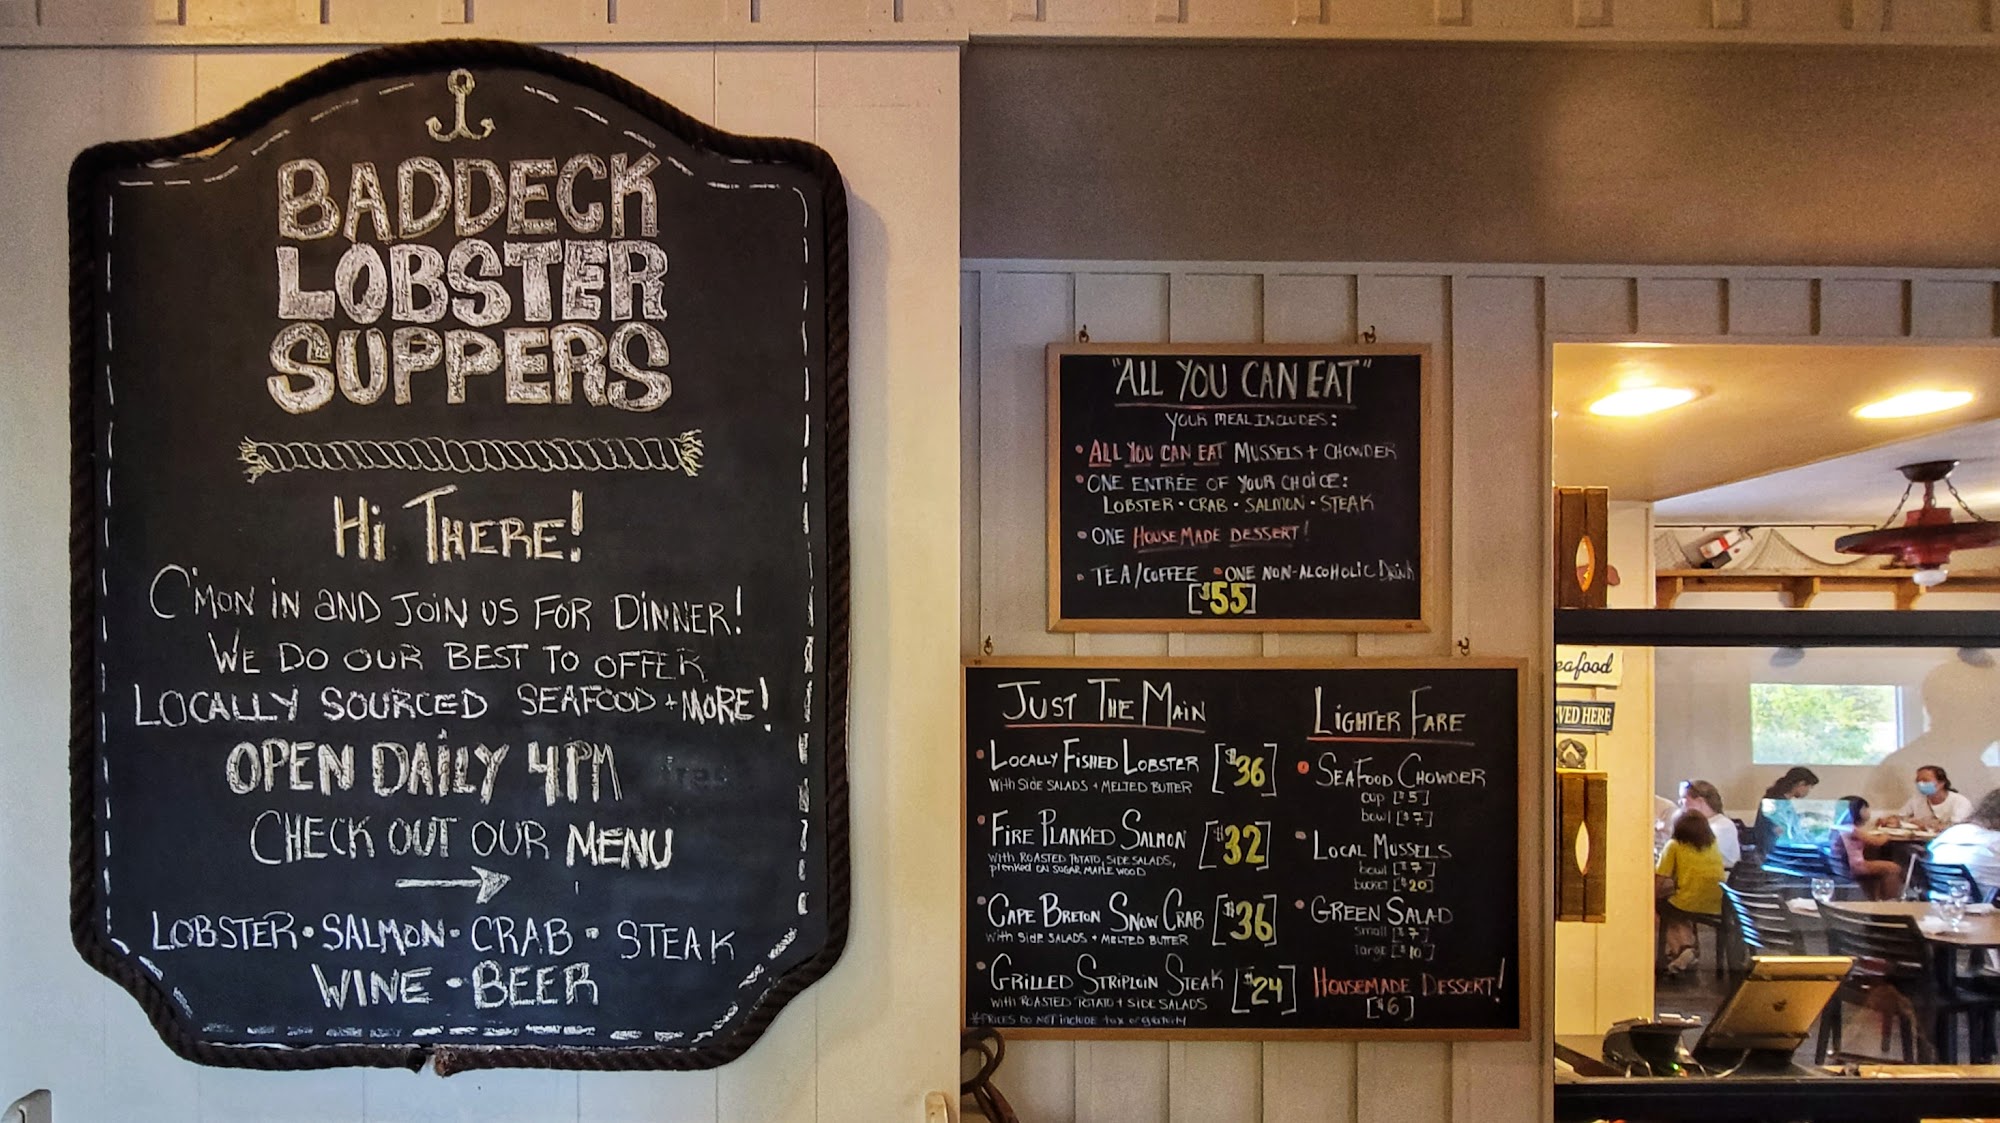 BADDECK
LOBSTER
SUPPERS
Hi THERE!
C'MON iN aND JOiN US FOR DiNNER!
WE DO OUR BEST TO OFFER
LOCALLY SOURCED SEAFOOD + MORE!
OPEN DAiLY 4PM
CHECK OUT OUR MENU
LOBSTER • SALMON • CRAB • STEAK
WINE • BEER
"ALL YOU CAN EAT"
YOUR MEAL INCLUDES:
• ALL YOU CAN EAT MUSSELS + CHOWDER
• ONE ENTRÉE OF YOUR CHOiCE:
LOBSTER • CRAB • SALMON • STEAK
• ONE HOUSEMADE DESSERT!
• TEA/COFFEE • ONE NON-ALCOHOLIC Drink
[$55]
JUST THE MAIN
• LOCALLY FISHED LOBSTER [$36]
WitH SiDE SALADS + MELTED BUTTER
• FIRE PLANKED SALMON [$32]
WitH ROASTED POTATO, SIDE SALADS,
planked ON SUGAR MAPLE WOOD
• CAPE BRETON SNOW CRAB [$36]
WitH SiDE SALADS + MELTED BUTTER
• GRILLED STRIPLOIN STEAK [$24]
WitH ROASTED POTATO + SIDE SALADS
*PRICES DO NOT include tax or gratuity
LIGHTER FARE
• SEAFOOD CHOWDER
cup [$5]
bowl [$7]
• LOCAL MUSSELS
bowl [$7]
bucket [$20]
• GREEN SALAD
small [$7]
large [$10]
HOUSEMADE DESSERT!
[$6]
eafood
VED HERE